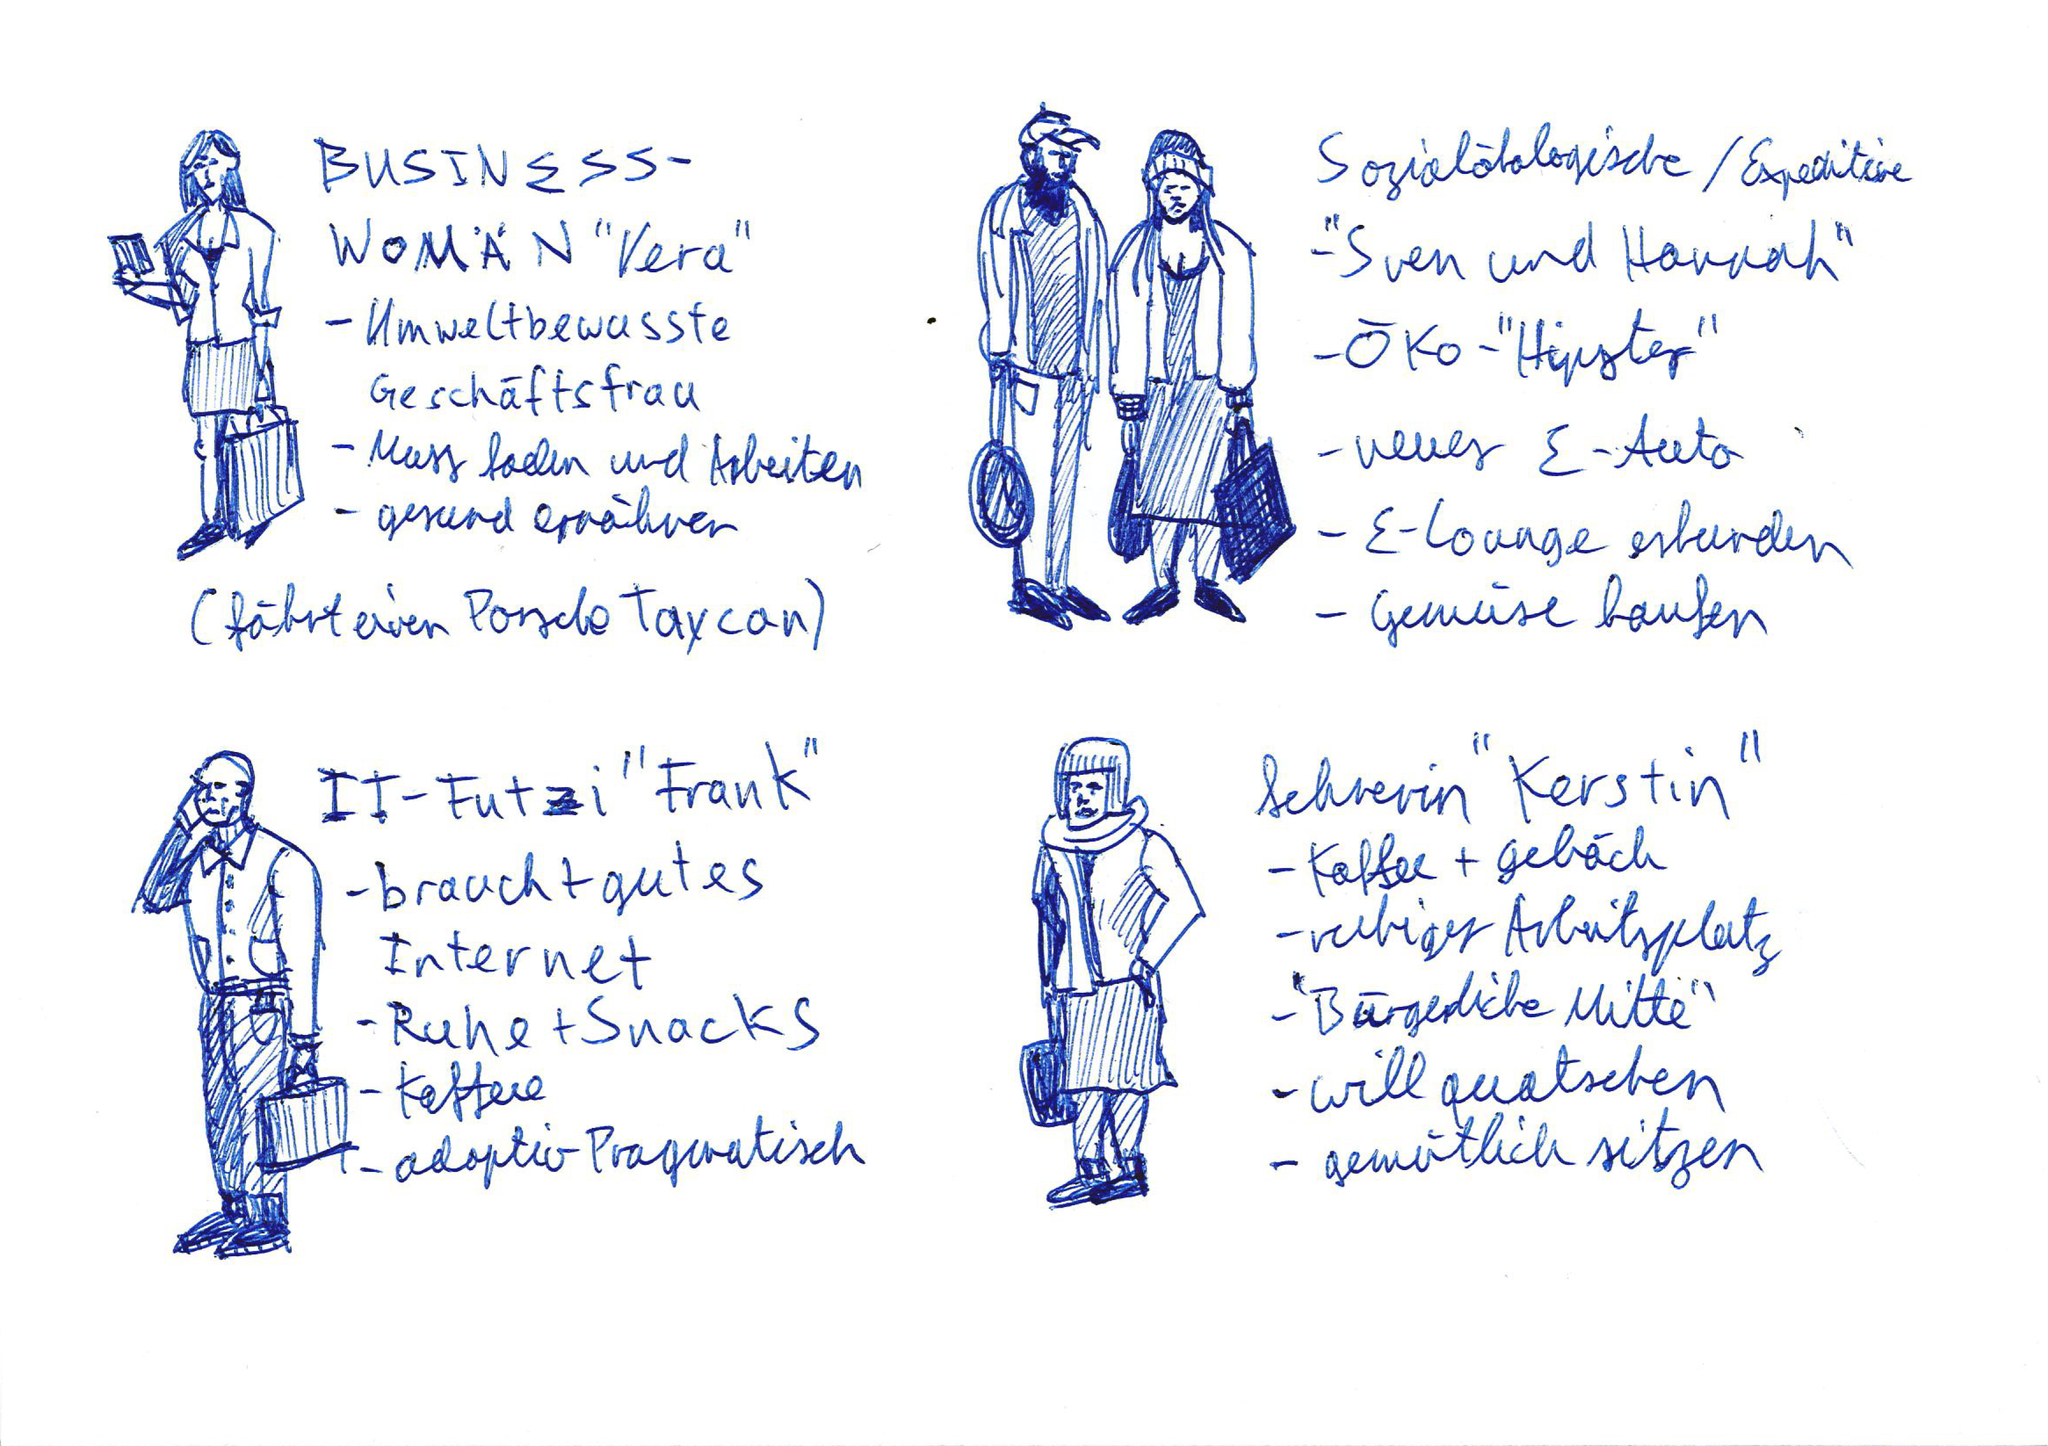 BUSINESS-
WOMÄN "Vera"
- Umweltbewusste
Geschäftsfrau
- Muss laden und Arbeiten
- gesund ernähren
(fährt einen Porsche Taycan)
Sozialökologische / Expeditive
- "Sven und Hannah"
- ÖKO - "Hipster"
- neues E-Auto
- E-Lounge erkunden
- Gemüse kaufen
IT-Futzi "Frank"
- braucht gutes
Internet
- Ruhe + Snacks
- Kaffee
- adaptiv Pragmatisch
"Kerstin"
- Kaffee + gebäck
- ruhiger Arbeitsplatz
- "Bürgerliche Mitte"
- will quatschen
- gemütlich sitzen